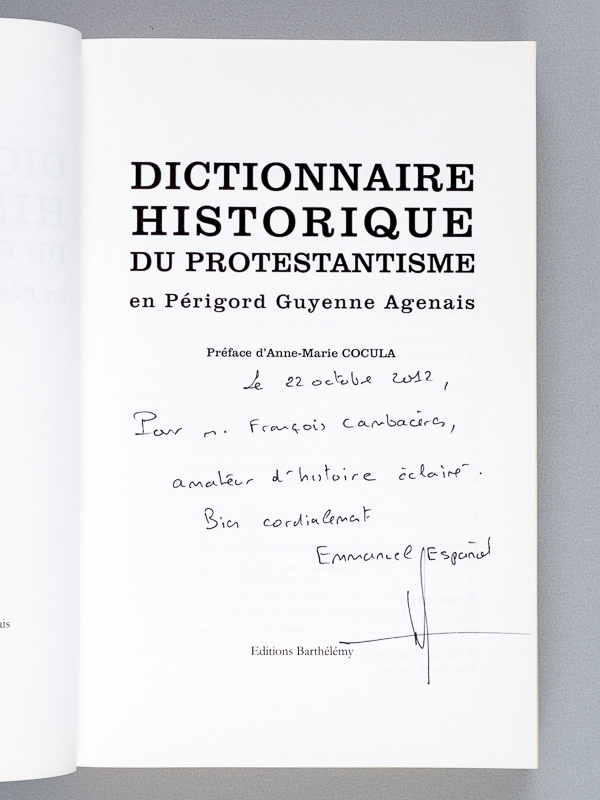 DICTIONNAIRE
HISTORIQUE
DU PROTESTANTISME
en Périgord Guyenne Agenais
Préface d'Anne-Marie COCULA
Le 22 octobre 2012,
Pour M. François Cambacérès,
amateur d'histoire éclairé.
Bien cordialement
Emmanuel Español
Editions Barthélémy
ais